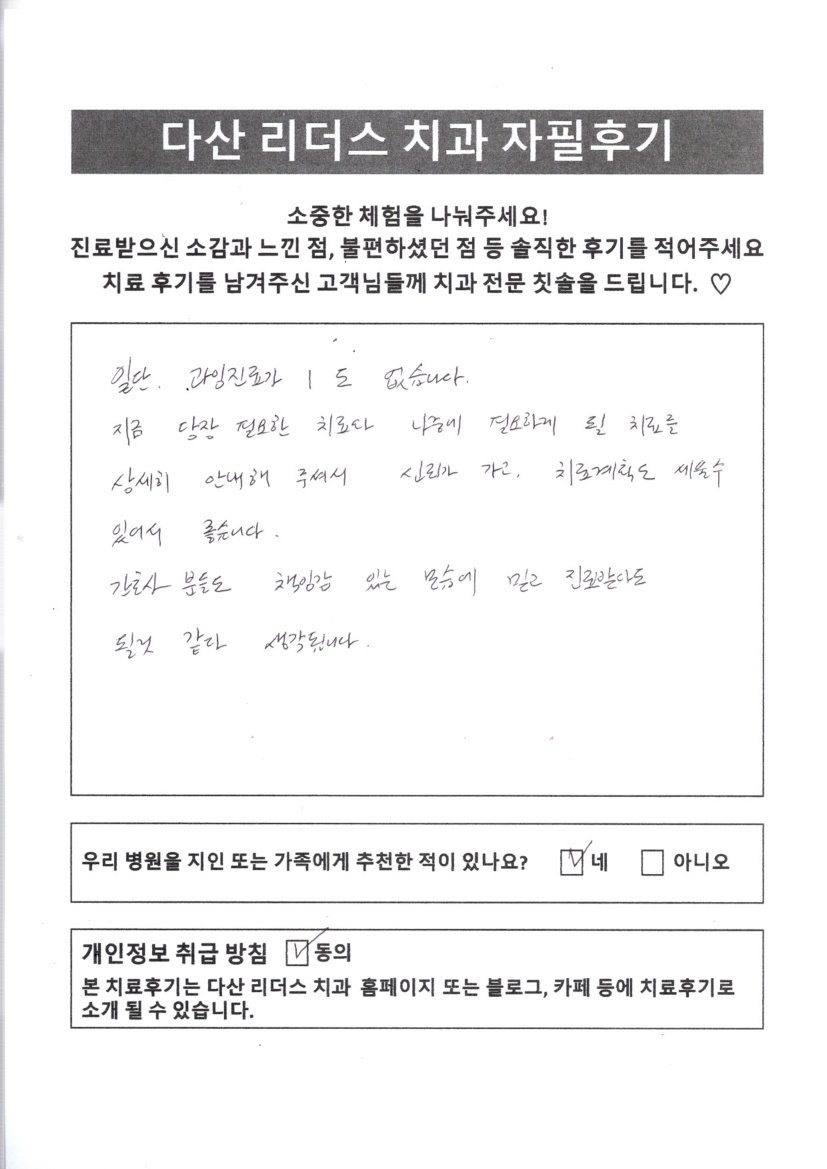 다산 리더스 치과 자필후기
소중한 체험을 나눠주세요!
진료받으신 소감과 느낀 점, 불편하셨던 점 등 솔직한 후기를 적어주세요
치료 후기를 남겨주신 고객님들께 치과 전문 칫솔을 드립니다. ♡
일단. 과잉진료가 1 도 없습니다.
지금 당장 필요한 치료와 나중에 필요하게 될 치료를
상세히 안내해 주셔서 신뢰가 가고, 치료계획도 세울수
있어서 좋습니다.
간호사 분들도 책임감 있는 모습에 믿고 진료받아도
될것 같다 생각됩니다.
우리 병원을 지인 또는 가족에게 추천한 적이 있나요? ☑ 네 ☐ 아니오
개인정보 취급 방침 ☑ 동의
본 치료후기는 다산 리더스 치과 홈페이지 또는 블로그, 카페 등에 치료후기로
소개 될 수 있습니다.